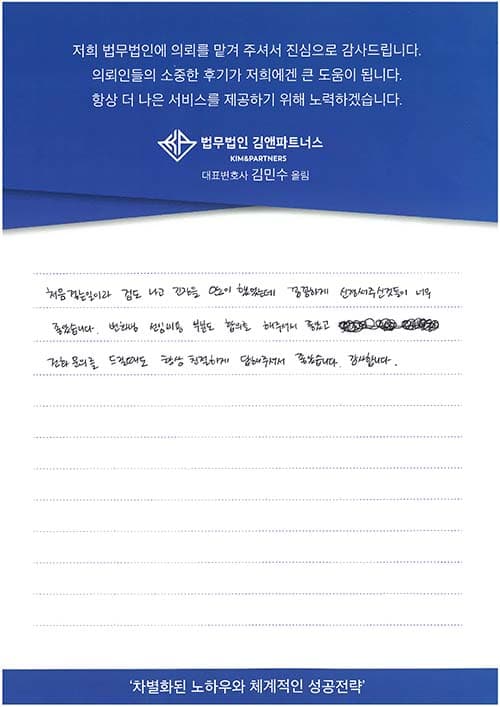 저희 법무법인에 의뢰를 맡겨 주셔서 진심으로 감사드립니다.
의뢰인들의 소중한 후기가 저희에겐 큰 도움이 됩니다.
항상 더 나은 서비스를 제공하기 위해 노력하겠습니다.
법무법인 김앤파트너스
KIM&PARTNERS
대표변호사 김민수 올림
처음 겪는일이라 겁도 나고 긴장을 많이 했었는데 꼼꼼하게 신경써주신것들이 너무
좋았습니다. 변호사님 선임비용 부분도 합의를 해주셔서 좋았고
전화 문의를 드릴때도 항상 친절하게 답해주셔서 좋았습니다. 감사합니다.
'차별화된 노하우와 체계적인 성공전략'